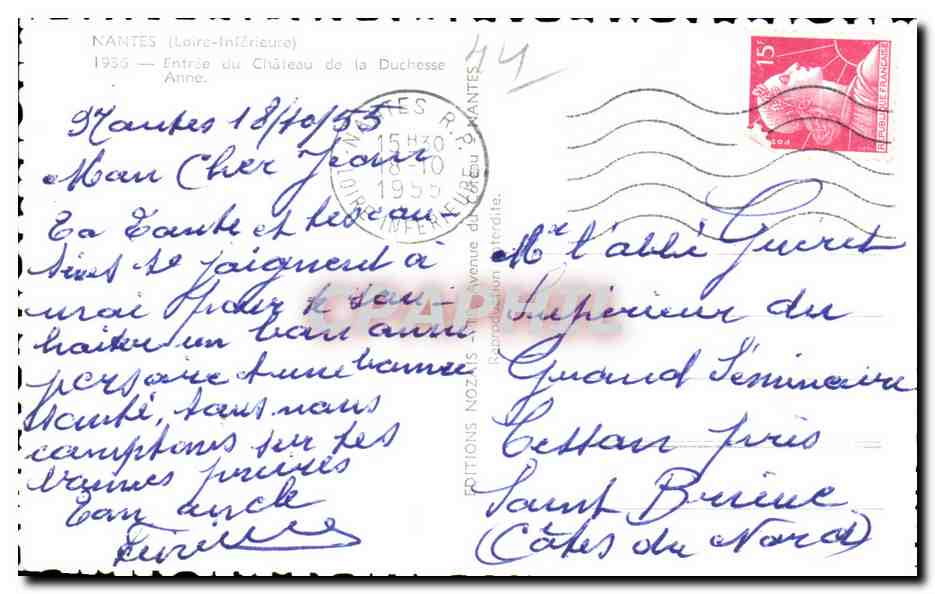 NANTES (Loire-Inférieure)
1936 — Entrée du Château de la Duchesse
Anne.
44
Nantes 18/10/55
Mon Cher Jean
Ta Tante et
se joignent à
moi pour te sou-
haiter un bon anni
persaire et une bonne
santé, tous nous
comptons sur tes
bonnes prières
Ton oncle
NANTES R.P.
15H30
18-10
1955
LOIRE INFERIEURE
EDITIONS NOZAIS - Avenue du Coteau NANTES
Reproduction interdite.
CPAPHIL
15F
REPUBLIQUE FRANÇAISE
POSTES
Mr l'abbé Guéret
Supérieur du
Grand Séminaire
Cesson près
Saint Brieuc
(Côtes du Nord)